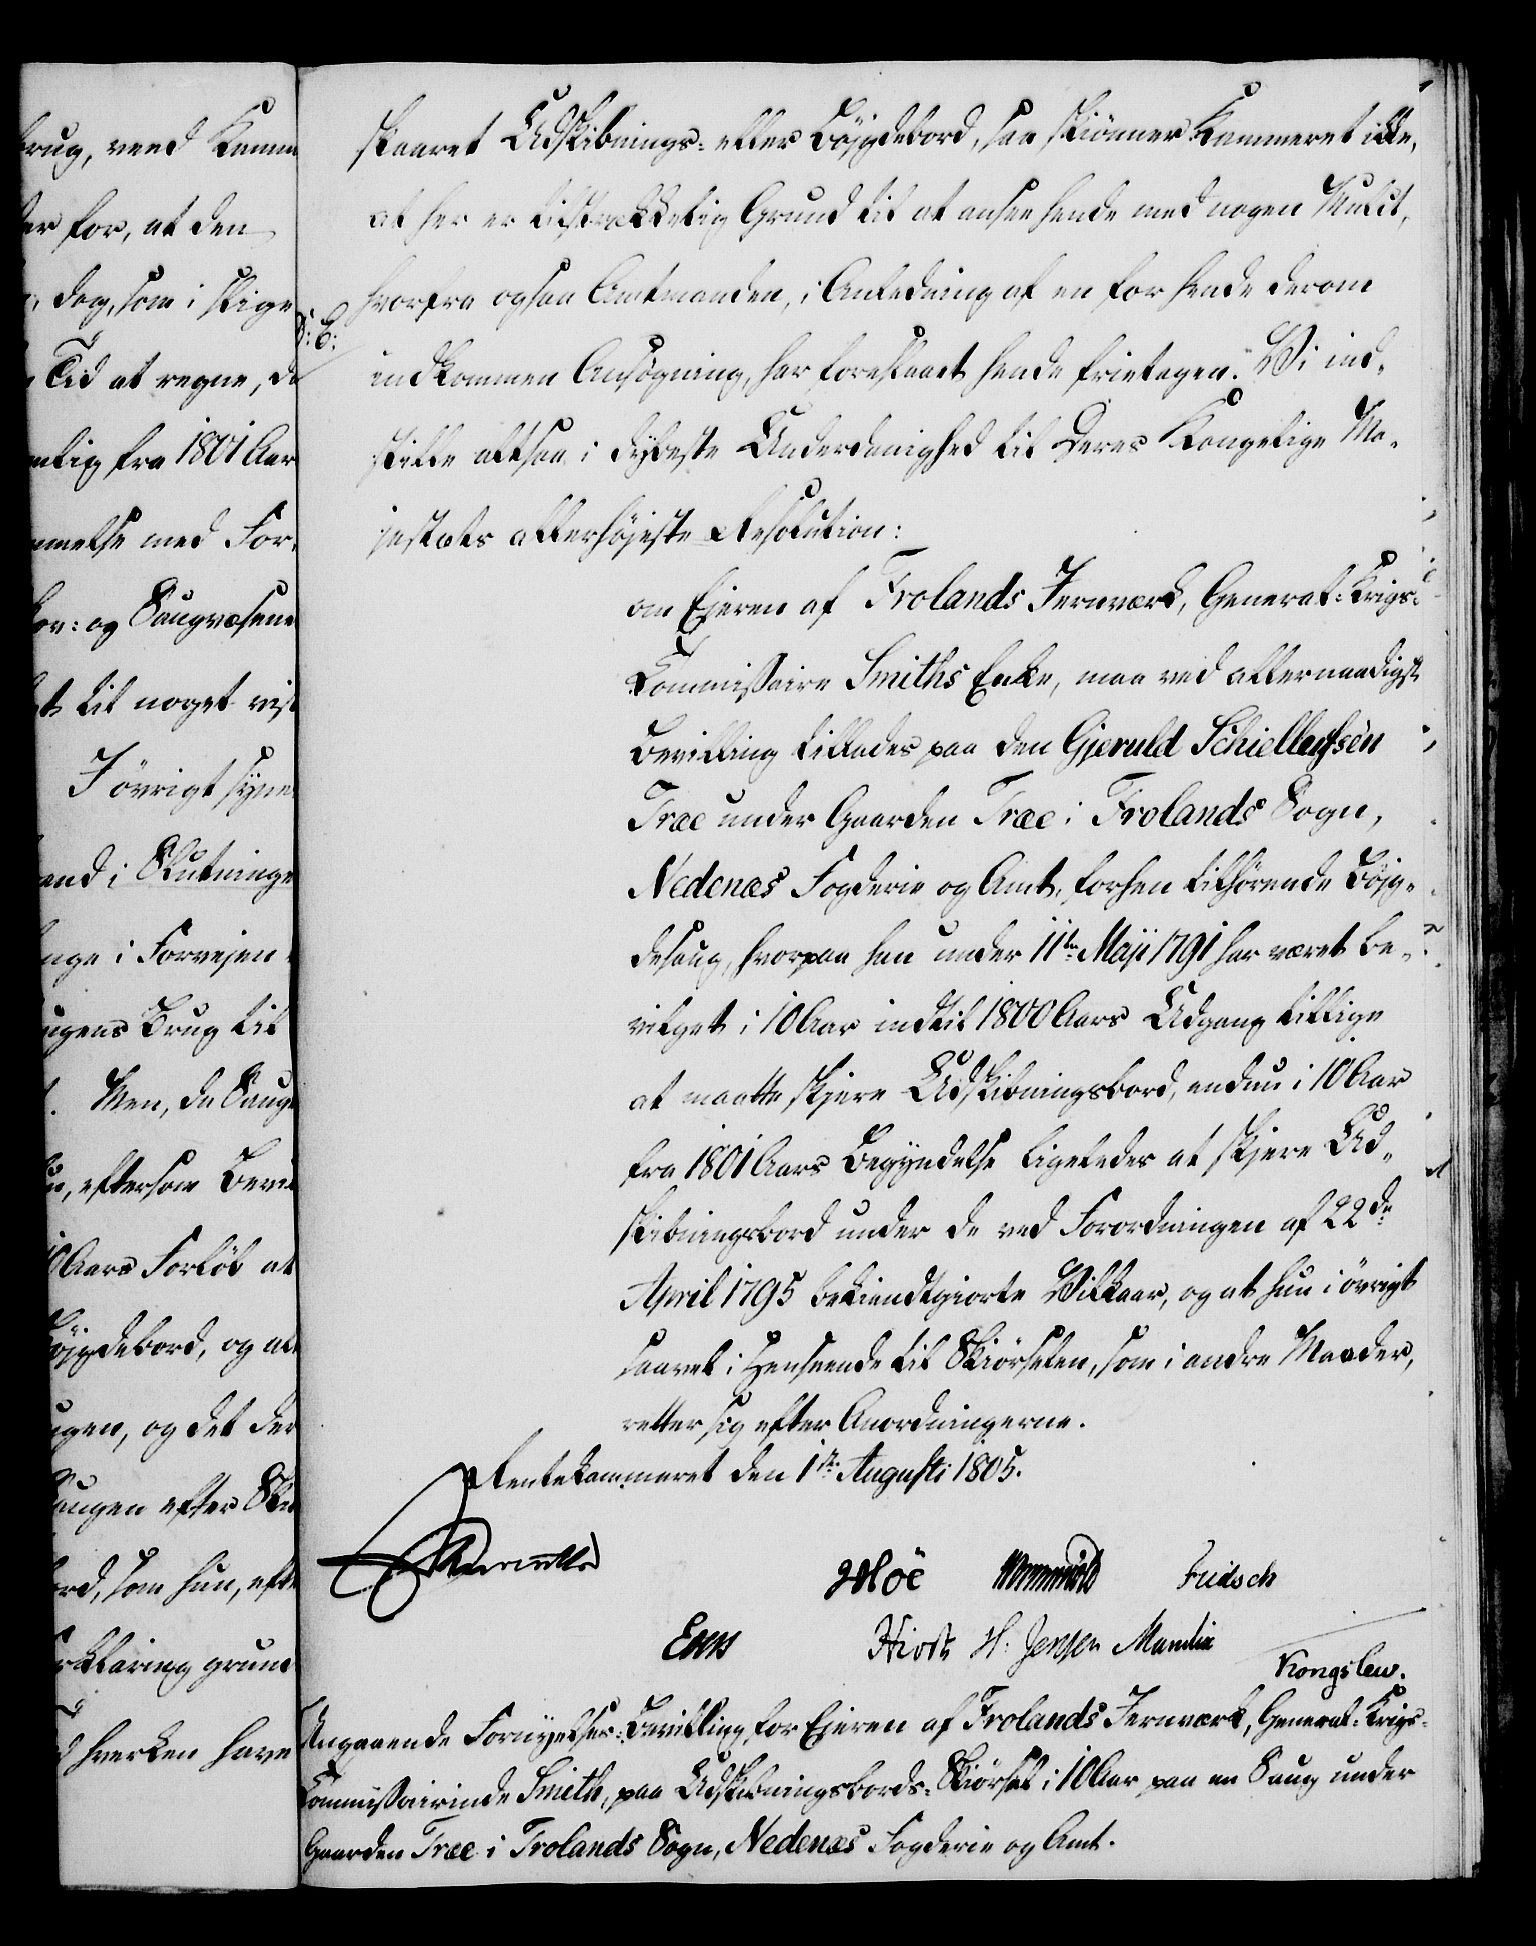 brug, veed Kamm
er for, at den
dog, som i slige
Tid at regne, de
ntlig fra 1801 Aar
mmelse med For-
ov- og Saugvæsene
et til noget vist
I øvrigt synes
and i Slutninge
nge i Forvejen
ugens Brug til
Men, da Sauge
eftersom Bevil
10 Aars Forløb at
öjgdebord, og at
ugen, og det der
Saugen efter
ord, som hun, efte
rklaring grund
hverken have
skaaret Udskibnings- eller Böjgdebord, saa skiønner Kammeret ikke,
at her er tilstrækkelig Grund til at ansee hende med nogen Mulct,
hvorfra ogsaa Amtmanden, i Anledning af en for hende derom
indkommen Ansøgning, har foreslaaet hende fritagen. Vi ind-
stille altsaa i dybeste Underdanighed til Deres Kongelige Ma-
jestæts allerhøjeste Resolution:
om Ejeren af Frolands Jernværk, General-Krigs-
Commissaire Smiths Enke, maa ved allernaadigst
Bevilling tillades paa den Gjeruld Schiellesen
Træe under Gaarden Træe i Frolands Sogn,
Nedenæs Fogderie og Amt, forhen tilhørende Böjg-
desaug, hvorpaa han under 11te Maji 1791 har været be-
vilget i 10 Aar indtil 1800 Aars Udgang tillige
at maatte skjære Udskibningsbord, endnu i 10 Aar
fra 1801 Aars Begyndelse ligeledes at skjære Ud-
skibningsbord under de ved Forordningen af 22de
April 1795 bekiendtgiorte Vilkaar, og at hun i øvrigt
saavel i Henseende til Skiørselen, som i andre Maader,
retter sig efter Anordningerne.
Rentekammeret den 1ste Augusti 1805.
Reventlow
Hoë Wormskiold Fridsch
Hiort H. Jensen Manthe
Kongslew.
Angaaende Fornyelses-Bevilling for Ejeren af Frolands Jernværk, General-Krigs-
Commissairinde Smith, paa Udskibningsbords-Skiørsel i 10 Aar paa en Saug under
Gaarden Træe i Frolands Sogn, Nedenæs Fogderie og Amt.